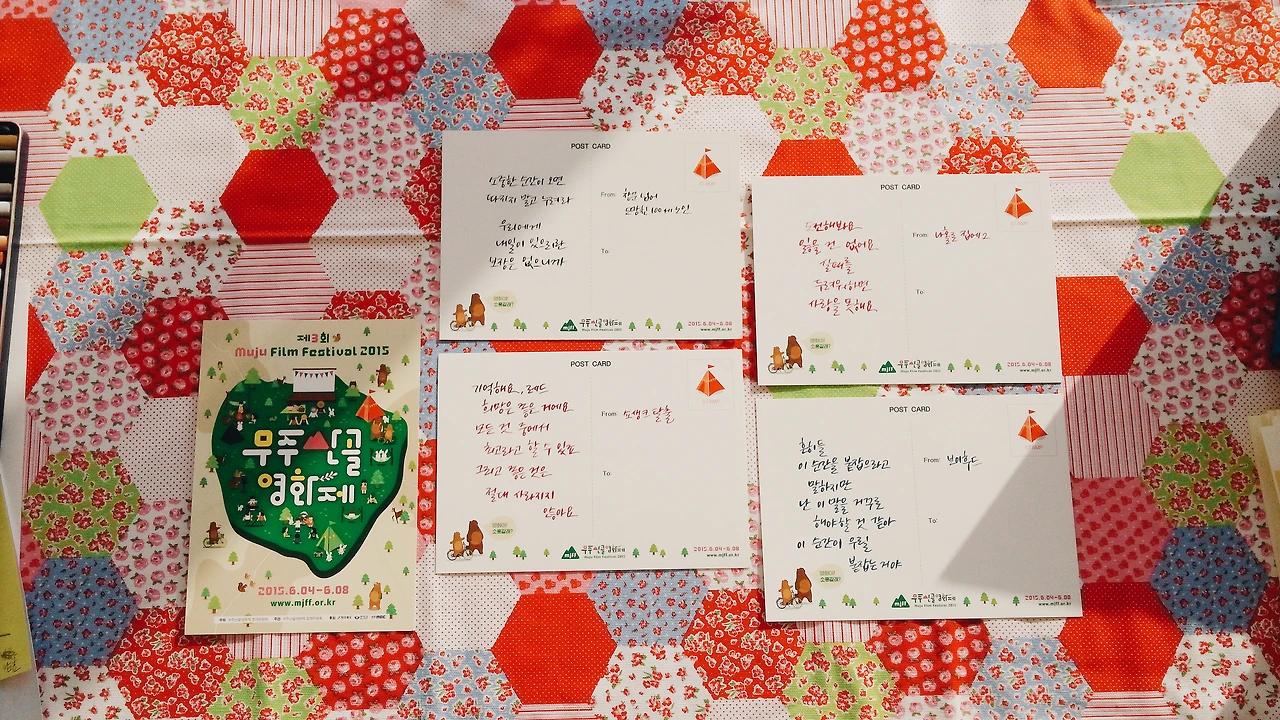 제3회
Muju Film Festival 2015
무주산골
영화제
2015.6.04-6.08
www.mjff.or.kr
POST CARD
소중한 순간이 오면
따지지 말고 누려라
우리에게
내일이 있으리란
보장은 없으니까
From: 창문 넘어
도망친 100세 노인
To:
영화야!
소풍갈래?
mjff 무주산골영화제
Muju Film Festival 2015
2015.6.04-6.08
www.mjff.or.kr
POST CARD
기억해요, 레드
희망은 좋은 거예요
모든 것 중에서
최고라고 할 수 있죠
그리고 좋은 것은
절대 사라지지
않아요
From: 쇼생크 탈출
To:
영화야!
소풍갈래?
mjff 무주산골영화제
Muju Film Festival 2015
2015.6.04-6.08
www.mjff.or.kr
POST CARD
도전해봐요
잃을 건 없어요
실패를
두려워하면
사랑을 못해요
From: 나홀로 집에2
To:
영화야!
소풍갈래?
mjff 무주산골영화제
Muju Film Festival 2015
2015.6.04-6.08
www.mjff.or.kr
POST CARD
흔히들
이 순간을 붙잡으라고
말하지만
난 이 말을 거꾸로
해야 할 것 같아
이 순간이 우릴
붙잡는 거야
From: 보이후드
To:
영화야!
소풍갈래?
mjff 무주산골영화제
Muju Film Festival 2015
2015.6.04-6.08
www.mjff.or.kr